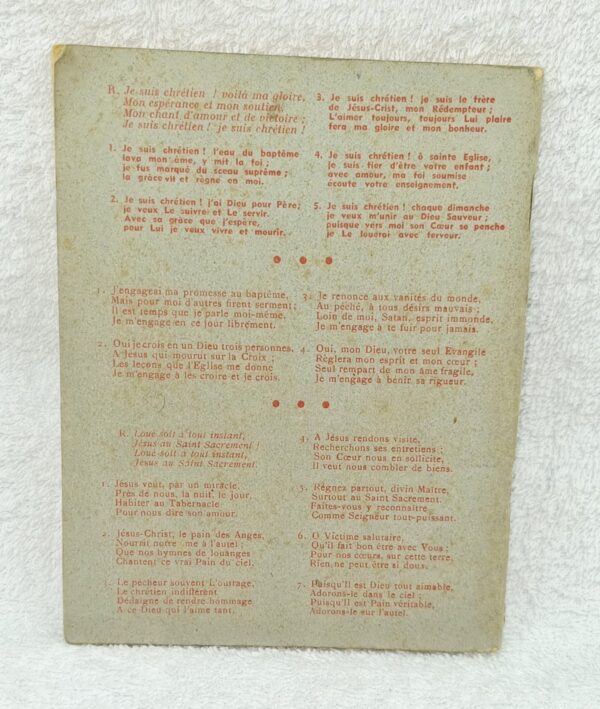 R. Je suis chrétien ! voilà ma gloire,
Mon espérance et mon soutien,
Mon chant d'amour et de victoire ;
Je suis chrétien ! je suis chrétien !
1. Je suis chrétien ! l'eau du baptême
lava mon âme, y mit la foi ;
je fus marqué du sceau suprême ;
la grâce vit et règne en moi.
2. Je suis chrétien ! j'ai Dieu pour Père;
je veux Le suivre et Le servir.
Avec sa grâce que j'espère,
pour Lui je veux vivre et mourir.
3. Je suis chrétien ! je suis le frère
de Jésus-Crist, mon Rédempteur ;
L'aimer toujours, toujours Lui plaire
fera ma gloire et mon bonheur.
4. Je suis chrétien ! ô sainte Eglise,
je suis fier d'être votre enfant ;
avec amour, ma foi soumise
écoute votre enseignement.
5. Je suis chrétien ! chaque dimanche
je veux m'unir au Dieu Sauveur ;
puisque vers moi son Cœur se penche
je Le louerai avec ferveur.
1. J'engageai ma promesse au baptême,
Mais pour moi d'autres firent serment ;
Il est temps que je parle moi-même,
Je m'engage en ce jour librement.
2. Oui je crois en un Dieu trois personnes,
A Jésus qui mourut sur la Croix ;
Les leçons que l'Eglise me donne
Je m'engage à les croire et je crois.
3. Je renonce aux vanités du monde,
Au péché, à tous désirs mauvais ;
Loin de moi, Satan, esprit immonde,
Je m'engage à te fuir pour jamais.
4. Oui, mon Dieu, votre seul Evangile
Règlera mon esprit et mon cœur ;
Seul rempart de mon âme fragile,
Je m'engage à bénir sa rigueur.
R. Loué soit à tout instant,
Jésus au Saint Sacrement !
Loué soit à tout instant,
Jésus au Saint Sacrement.
1. Jésus veut, par un miracle,
Près de nous, la nuit, le jour,
Habiter au Tabernacle
Pour nous dire son amour.
2. Jésus-Christ, le pain des Anges,
Nourrit notre me à l'autel
Que nos hymnes de louanges
Chantent ce vrai Pain du ciel.
3. Le pécheur souvent L'outrage,
Le chrétien indifférent
Dédaigne de rendre hommage
A ce Dieu qui l'aime tant.
4. A Jésus rendons visite,
Recherchons ses entretiens ;
Son Cœur nous en sollicite,
Il veut nous combler de biens.
5. Régnez partout, divin Maître,
Surtout au Saint Sacrement.
Faites-vous y reconnaître
Comme Seigneur tout-puissant.
6. O Victime salutaire,
Qu'il fait bon être avec Vous ;
Pour nos cœurs, sur cette terre,
Rien ne peut être si doux.
7. Puisqu'Il est Dieu tout aimable,
Adorons-le dans le ciel ;
Puisqu'Il est Pain véritable,
Adorons-le sur l'autel.